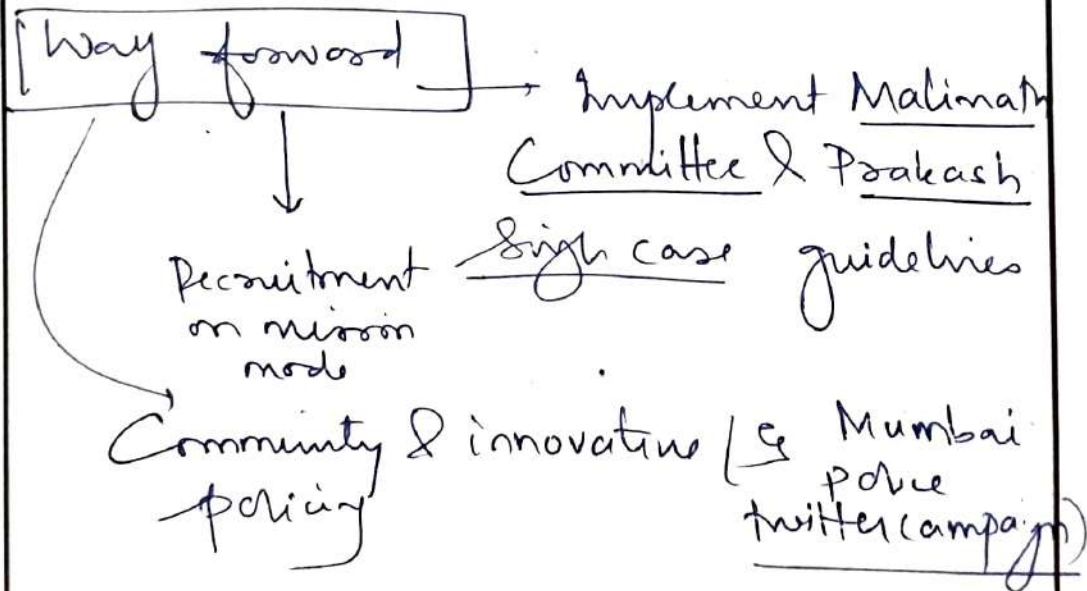 Way forward
Implement Malimath
Committee & Prakash
Singh case guidelines
Recruitment
on mission
mode
Community & innovative (eg Mumbai
policing police
twitter campaign)